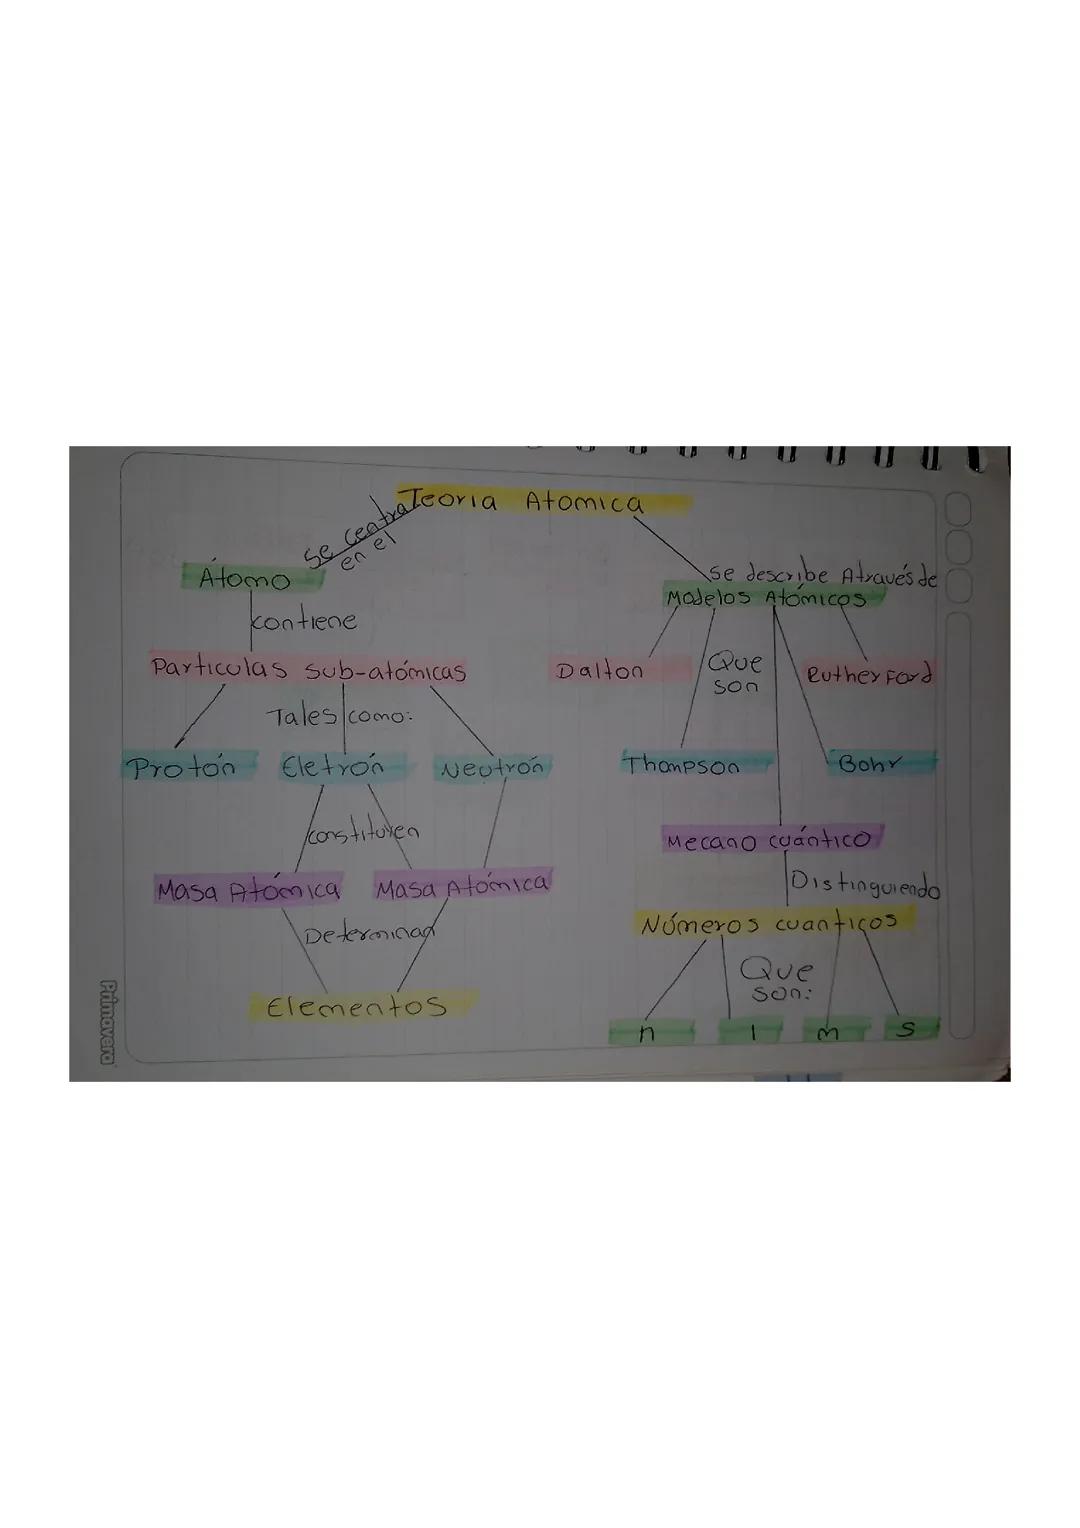 Teoria Atomica
se centra
en el
Átomo
se describe Através de
Modelos Atómicos
contiene
Particulas sub-atómicas
Dalton
Que
son
Rutherford
Tales como:
Protón
Eletrón
Neutrón
Thompson
Bohr
constituyen
Mecano cuántico
Masa Atómica
Masa Atómica
Distinguiendo
Determinan
Números cuanticos
Que
son:
Elementos
n
l
m
s
Primavera